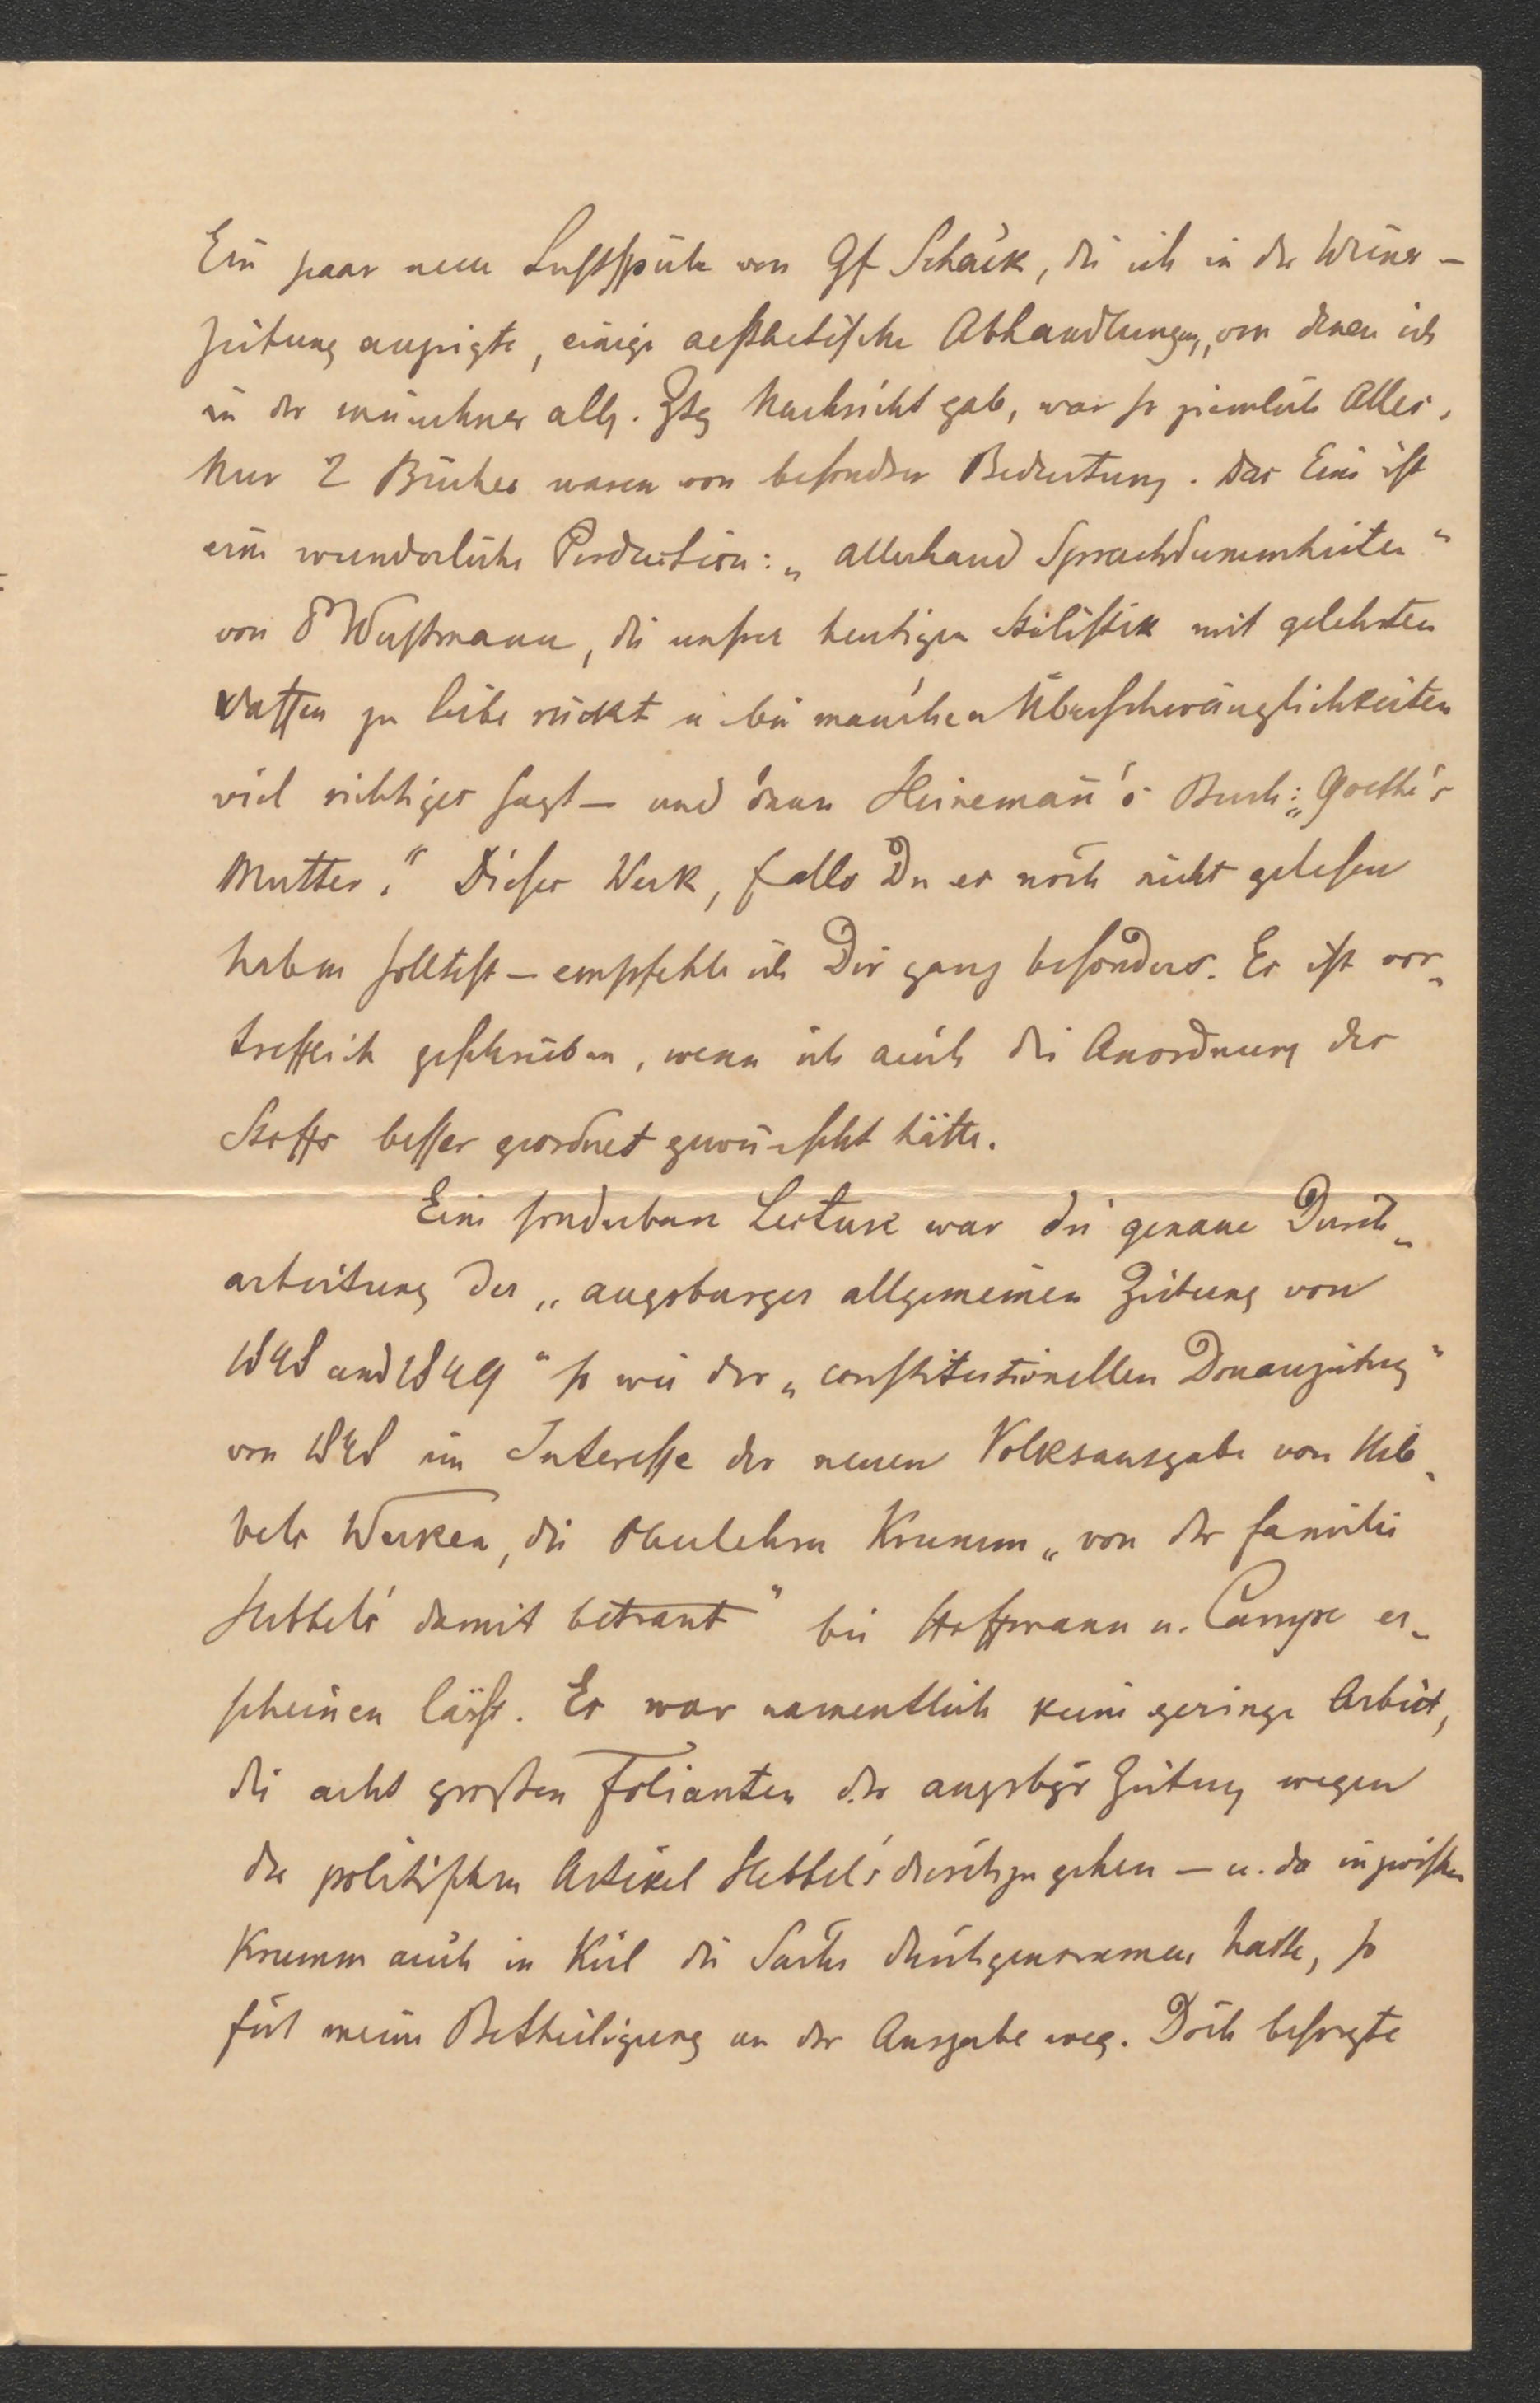 Ein paar neue Lustspiele von Gf Schack, die ich in der Wiener-
zeitung anzeigte, einige aesthetische Abhandlungen, von denen ich
in der münchner allg. Ztg Nachricht gab, war so ziemlich Alles.
Nur 2 Bücher waren von besondrer Bedeutung. Das Eine ist
eine wunderliche Production: „allerhand Sprachdummheiten“
von Wustmann, die unsrer heutigen Stilistik mit gelehrten
Waffen zu Leibe rückt u bei manchen Überschwänglichkeiten
viel richtiges sagt – und dann Heinemañ's Buch: „Goethe's
Mutter.“ Dieses Werk, falls Du es noch nicht gelesen
haben solltest – empfehle ich Dir ganz besonders. Es ist vor-
trefflich geschrieben, wenn ich auch die Anordnung des
Stoffs besser geordnet gewünscht hätte.
Eine sonderbare Lecture war die genaue Durch-
arbeitung der „augsburger allgemeinen Zeitung von
1848 und 1849“ so wie der „constitutionellen Donauzeitung“
von 1848 im Interesse der neuen Volksausgabe von Heb-
bels Werken, die Oberlehrer Krumm „von der Familie
Hebbels' damit betraut“ bei Hoffmann u. Campe er-
scheinen läßt. Es war namentlich keine geringe Arbeit,
die acht großen Folianten der augsbgr Zeitung wegen
der politischen Artikel Hebbel's durchzugehen – u. da inzwischen
Krumm auch in Kiel die Sache durchgenommen hatte, so
fiel meine Betheiligung an der Ausgabe weg. Doch besorgte